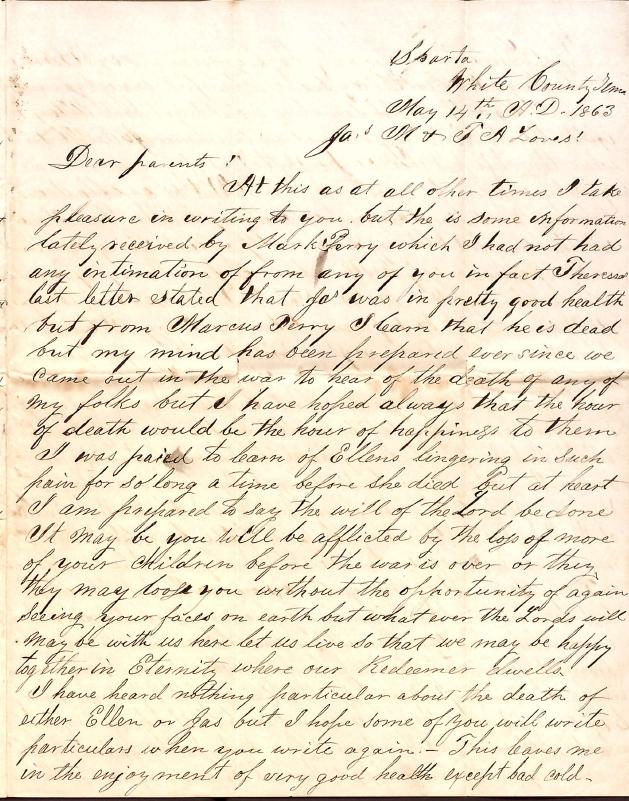 Sparta
White County Tenn
May 14th, A.D. 1863
Jas M & T A Loves!
Dear parents!
At this as at all other times I take
pleasure in writing to you but the is some information
lately received by Mark Perry which I had not had
any intimation of from any of you in fact Theressa
last letter stated that Jas was in pretty good health
but from Marcus Perry I learn that he is dead
but my mind has been prepared ever since we
came out in the war to hear of the death of any of
my folks but I have hoped always that the hour
of death would be the hour of happiness to them
I was paied to learn of Ellens lingering in such
pain for so long a time before she died but at heart
I am prepared to say the will of the Lord be done
It may be you will be afflicted by the loss of more
of your children before the war is over or they
they may loose you without the opportunity of again
seeing your faces on earth but what ever the Lords will
may be with us here let us live so that we may be happy
together in Eternity where our Redeemer dwells
I have heard nothing particular about the death of
either Ellen or Jas but I hope some of you will write
particulars when you write again. – This leaves me
in the enjoyment of very good health except bad cold –